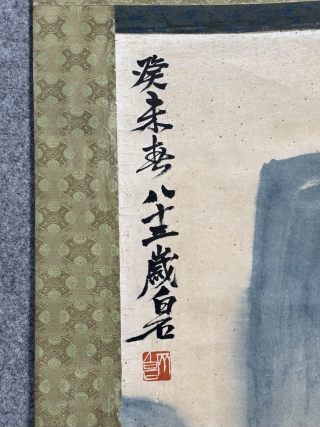 癸未春八十三歲白石